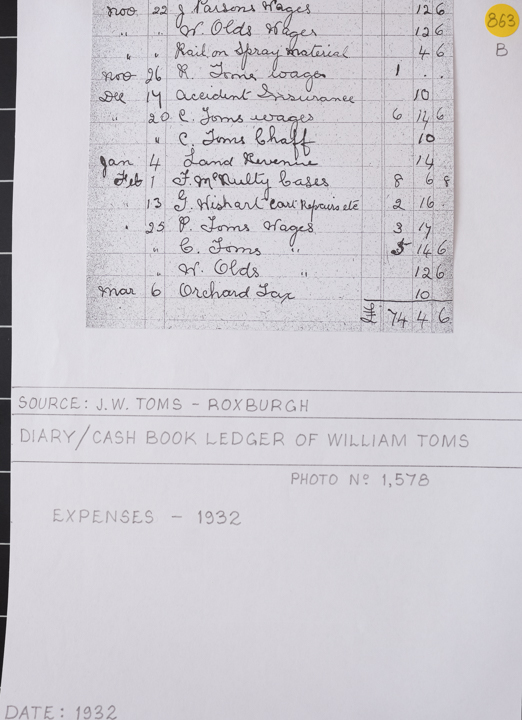 Nov 22 J Parsons Wages 12 6
" " W. Olds Wages 12 6
" " Rail on Spray material 4 6
Nov 26 R. Toms Wages 1 . .
Dec 14 Accident Insurance 10
" 20 C. Toms Wages 6 14 6
" C. Toms Chaff 10
Jan 4 Land Revenue 14
Feb 1 F. McNulty Cases 8 6 8
" 13 G. Wishart Cart Repairs etc 2 16
" 25 P. Toms Wages 3 17
" C. Toms " 5 14 6
" W. Olds " 12 6
Mar 6 Orchard Tax 10
74 4 6
863
B
SOURCE: J.W. TOMS - ROXBURGH
DIARY/CASH BOOK LEDGER OF WILLIAM TOMS
PHOTO Nº 1,578
EXPENSES - 1932
DATE: 1932